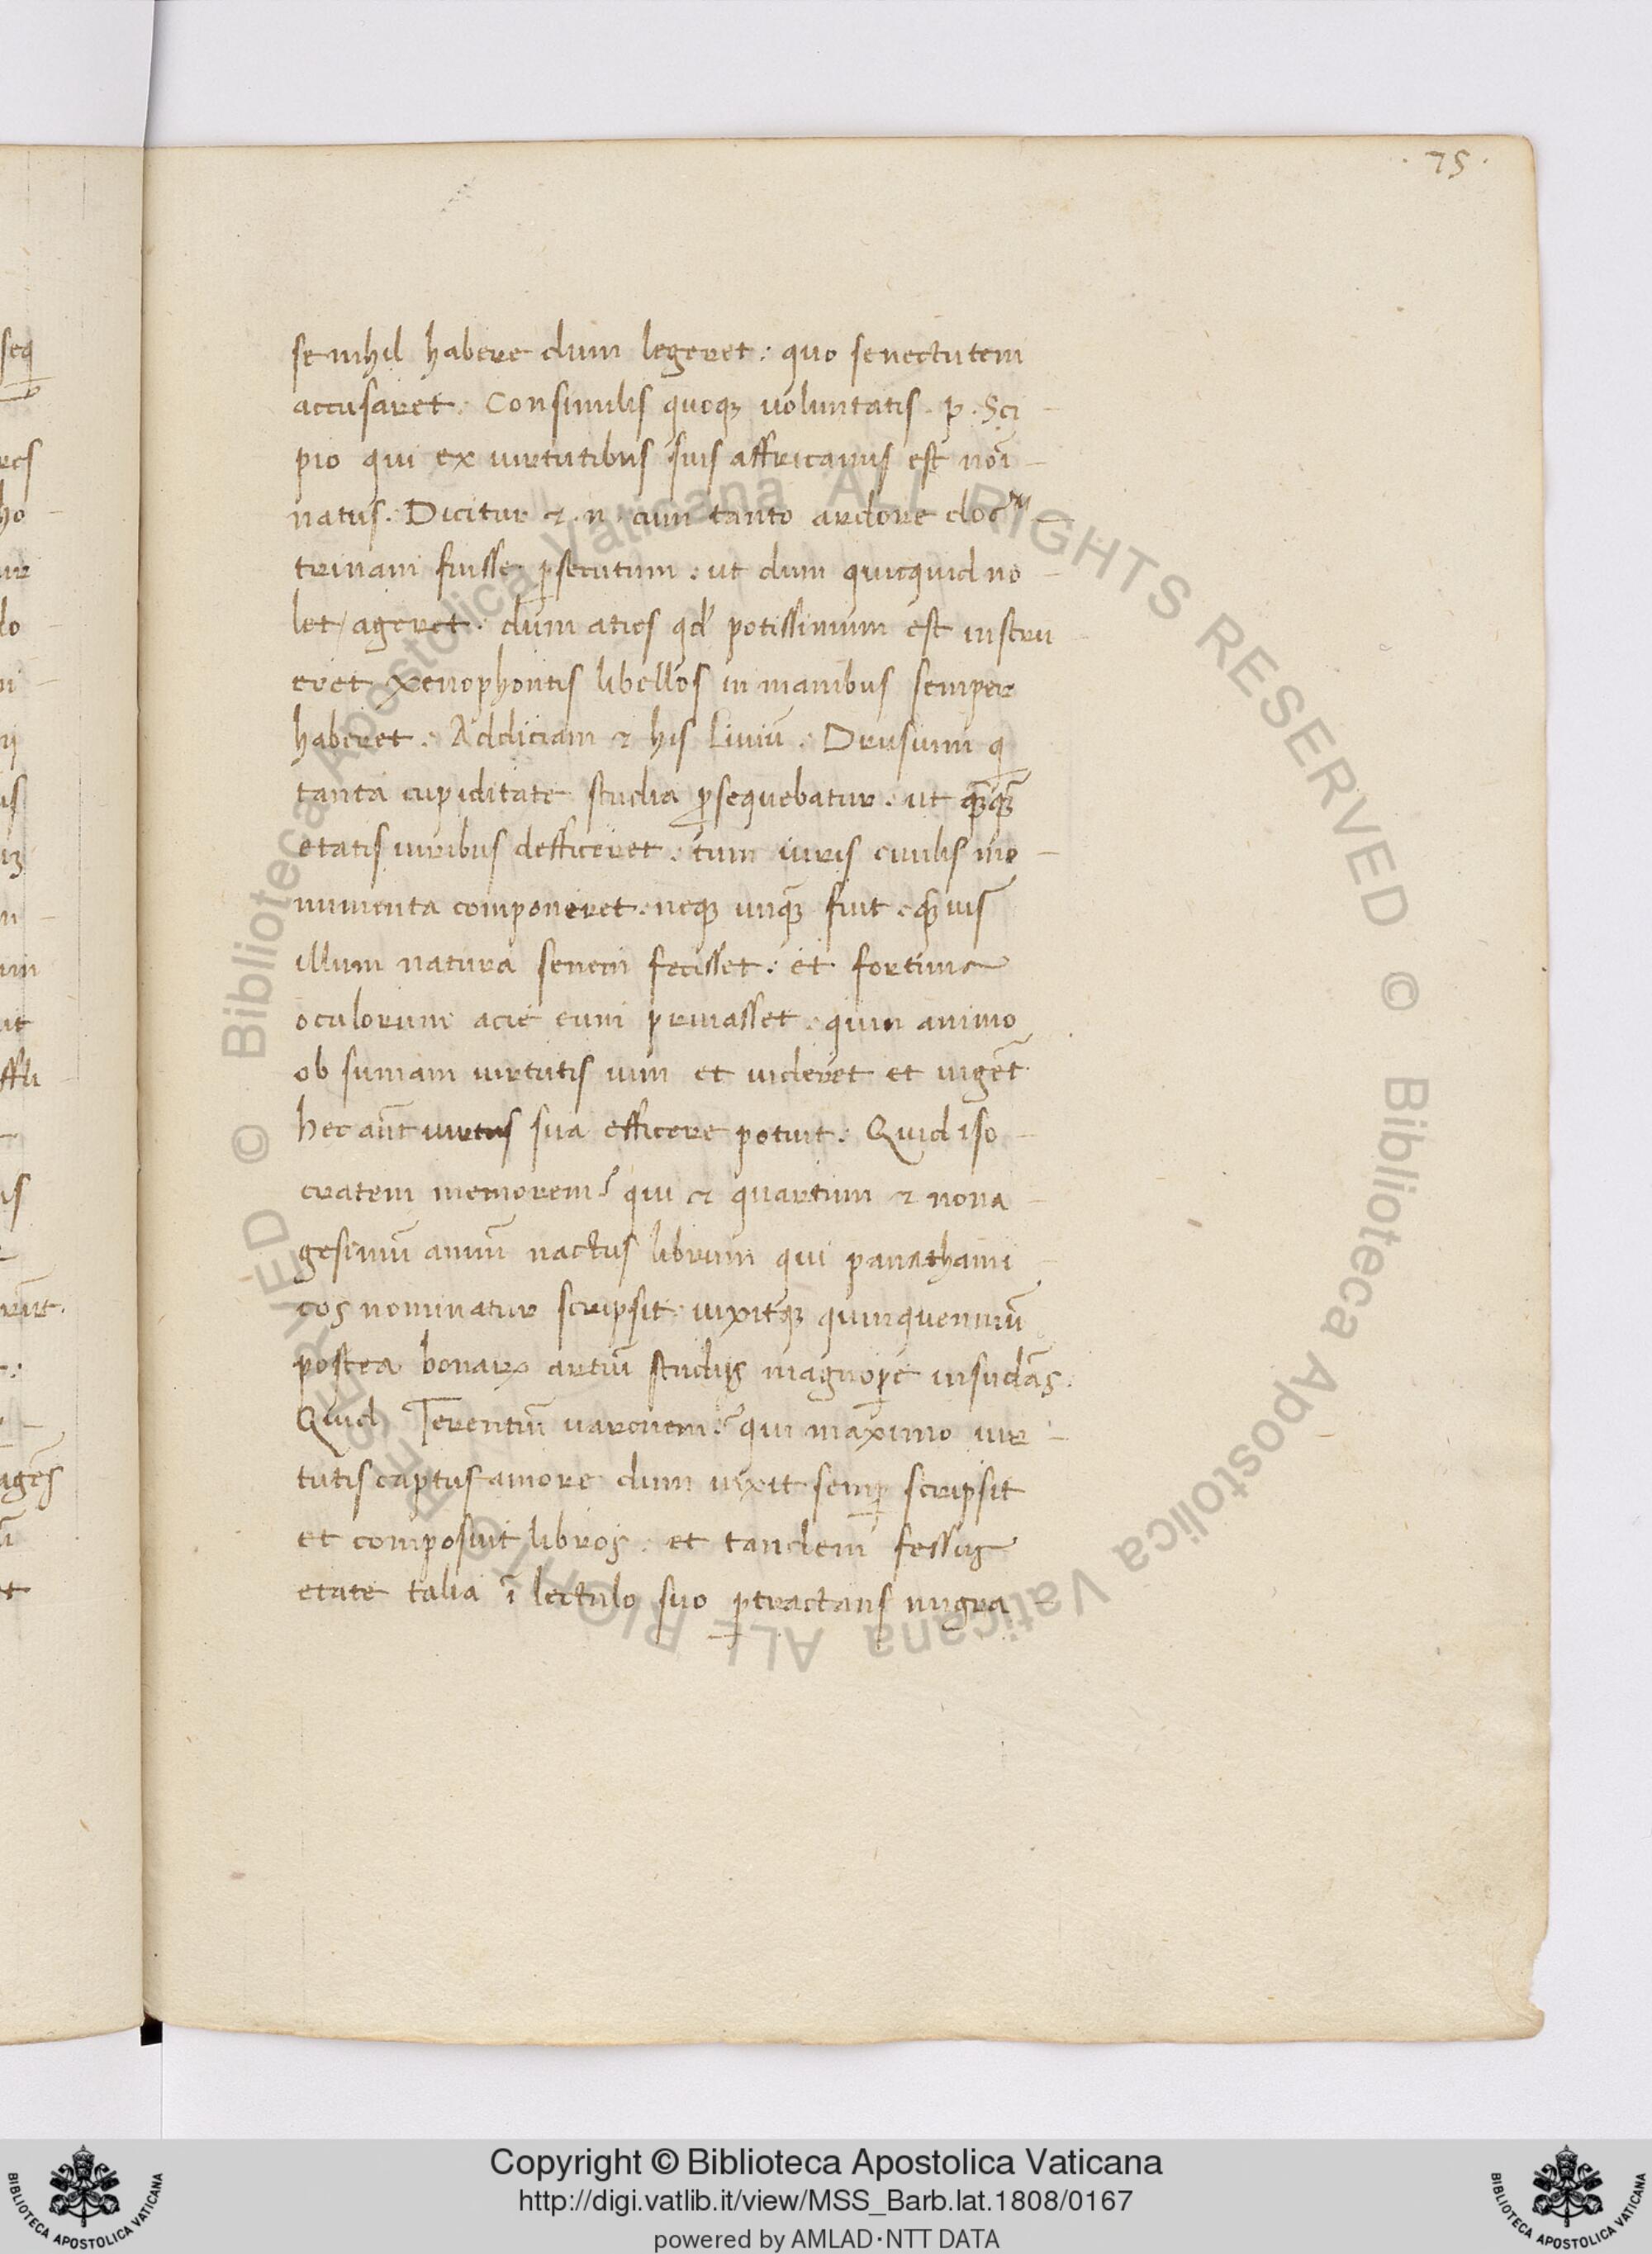 .75.
se nihil habere dum legeret: quo senectutem
accusaret. Consimilis quoqꝫ uoluntatis. p. Sci-
pio qui ex uirtutibus suis affricanus est noı̄-
natus. Dicitur ⁊.n. cum tanto ardore doc-
trinam fuisse ꝓsecutum. ut dum quicquid no-
let/ ageret. dum aties qd̓ potissimum est instru-
eret xenophontis libellos in manibus semper
haberet. Addiciam ⁊ his Liuiū. Drusum q
tanta cupiditate studia ꝓsequebatur. ut qꝫqꝫ̄
etatis uiribus defficeret. tum iuris ciuilis mo-
numenta componeret. neqꝫ unqꝫ̄ fuit. qꝫ̄uis
illum natura senem fecisset. et fortuna
oculorum acie eum priuasset. quin animo
ob sumam uirtutis uim et uideret et uigēt
hec aūt uirtus sua efficere potuit. Quid iso-
cratem memorem? qui ⁊ quartum ⁊ nona-
gesimū annū nactus librum qui panathani-
cos nominatur scripsit. uixitqꝫ quinquenniū
postea bonaꝝ artiū studijs magnoꝑe insudās.
Quid Terentiū uaronem? qui maximo uir-
tutis captus amore dum uixit semꝑ scripsit
et composuit libros. et tandem fessus
etate talia ī lectulo suo ꝑtractans migra-
© Biblioteca Apostolica Vaticana ALL RIGHTS RESERVED © Biblioteca Apostolica Vaticana ALL RIGHTS RESERVED
Copyright © Biblioteca Apostolica Vaticana
http://digi.vatlib.it/view/MSS_Barb.lat.1808/0167
powered by AMLAD·NTT DATA
BIBLIOTECA APOSTOLICA VATICANA
BIBLIOTECA APOSTOLICA VATICANA